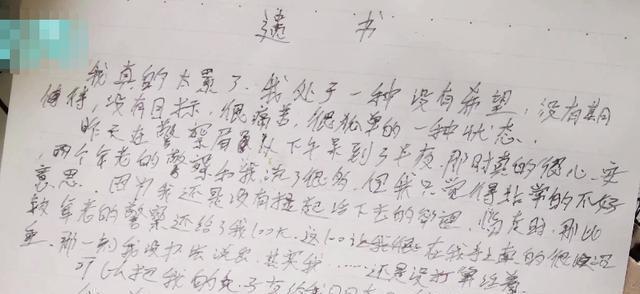 遗 书
我真的太累了.我处于一种没有希望,没有期
待,没有目标,很痛苦,很孤单的一种状态.
昨天在警察局从下午呆到了半夜,那时真的很心
,两个年老的警察和我说了很多,但我只觉得非常的不好
意思.因为我还是没有提起活下去的欲望.临走时,那比
较年老的警察还给了我100元.这100让我 在我手上真的很
,那一刻我没办法说出,其实我……还是没打算活着.
可以把我的